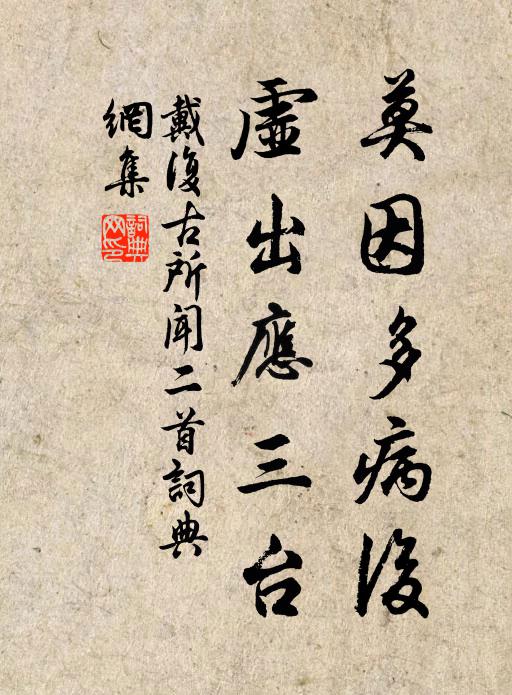 莫因多病後
虛出應三台
戴復古所聞二首詞典
網集
詞典網印